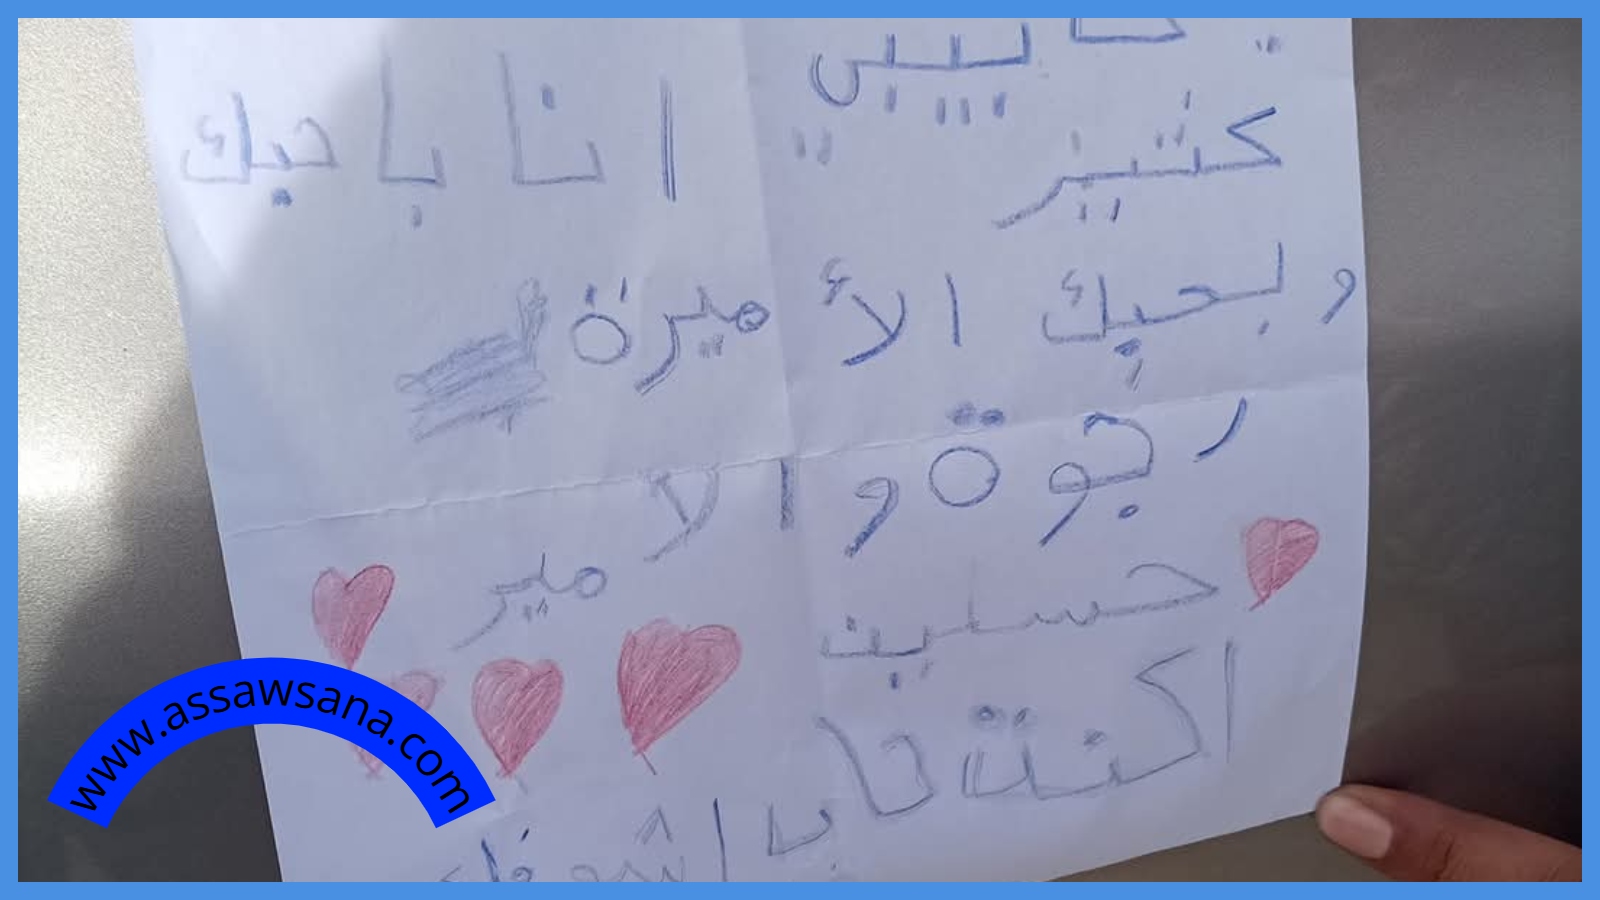 انا باحبك
كثير
و بحبك الأميرة
رجوة و الا مير
حسين
اكنت حاب اشوف
www.assawsana.com